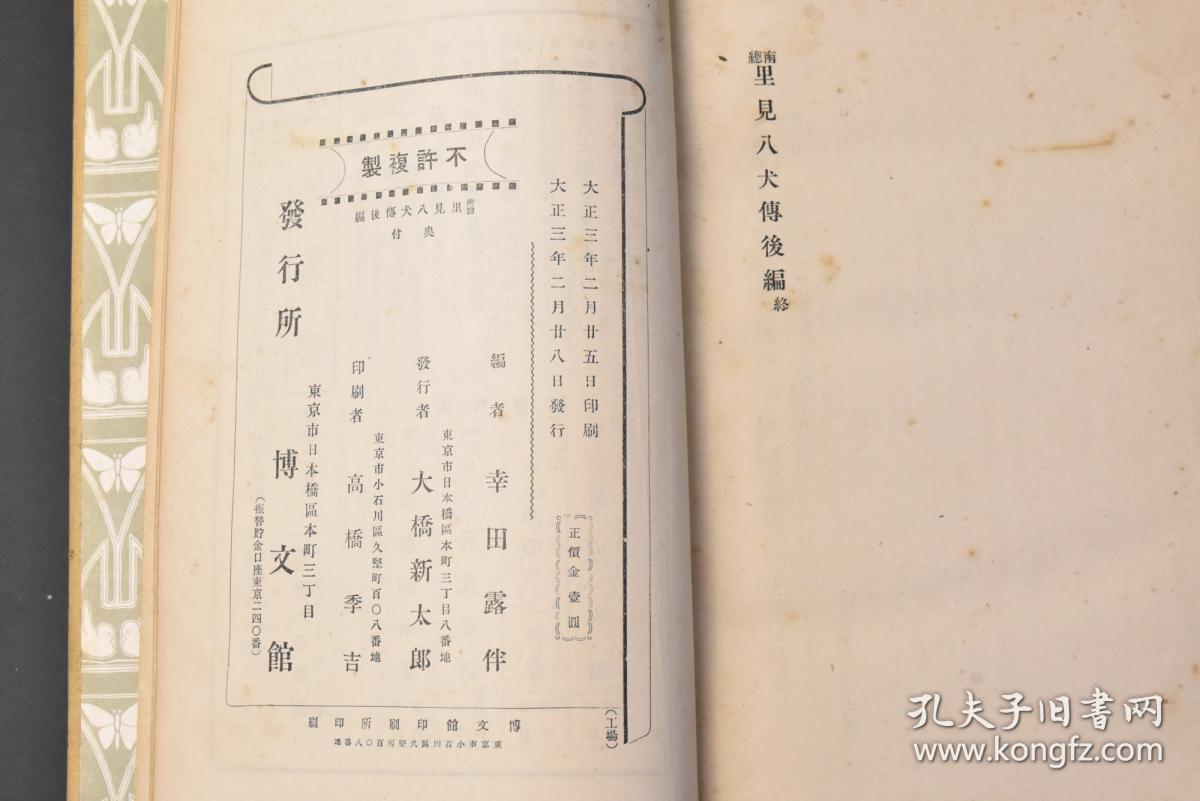 南總里見八犬傳後編終
大正三年二月廿五日印刷
大正三年二月廿八日發行
正價金壹圓
不許複製
南總里見八犬傳後編
奥付
編者 幸田露伴
東京市日本橋區本町三丁目八番地
發行者 大橋新太郎
東京市小石川區久堅町百〇八番地
印刷者 高橋季吉
東京市日本橋區本町三丁目
發行所 博文館
(振替貯金口座東京二四〇番)
(工場)
博文館印刷所印刷
東京市小石川區久堅町百〇八番地
孔夫子旧书网
kongfz.com